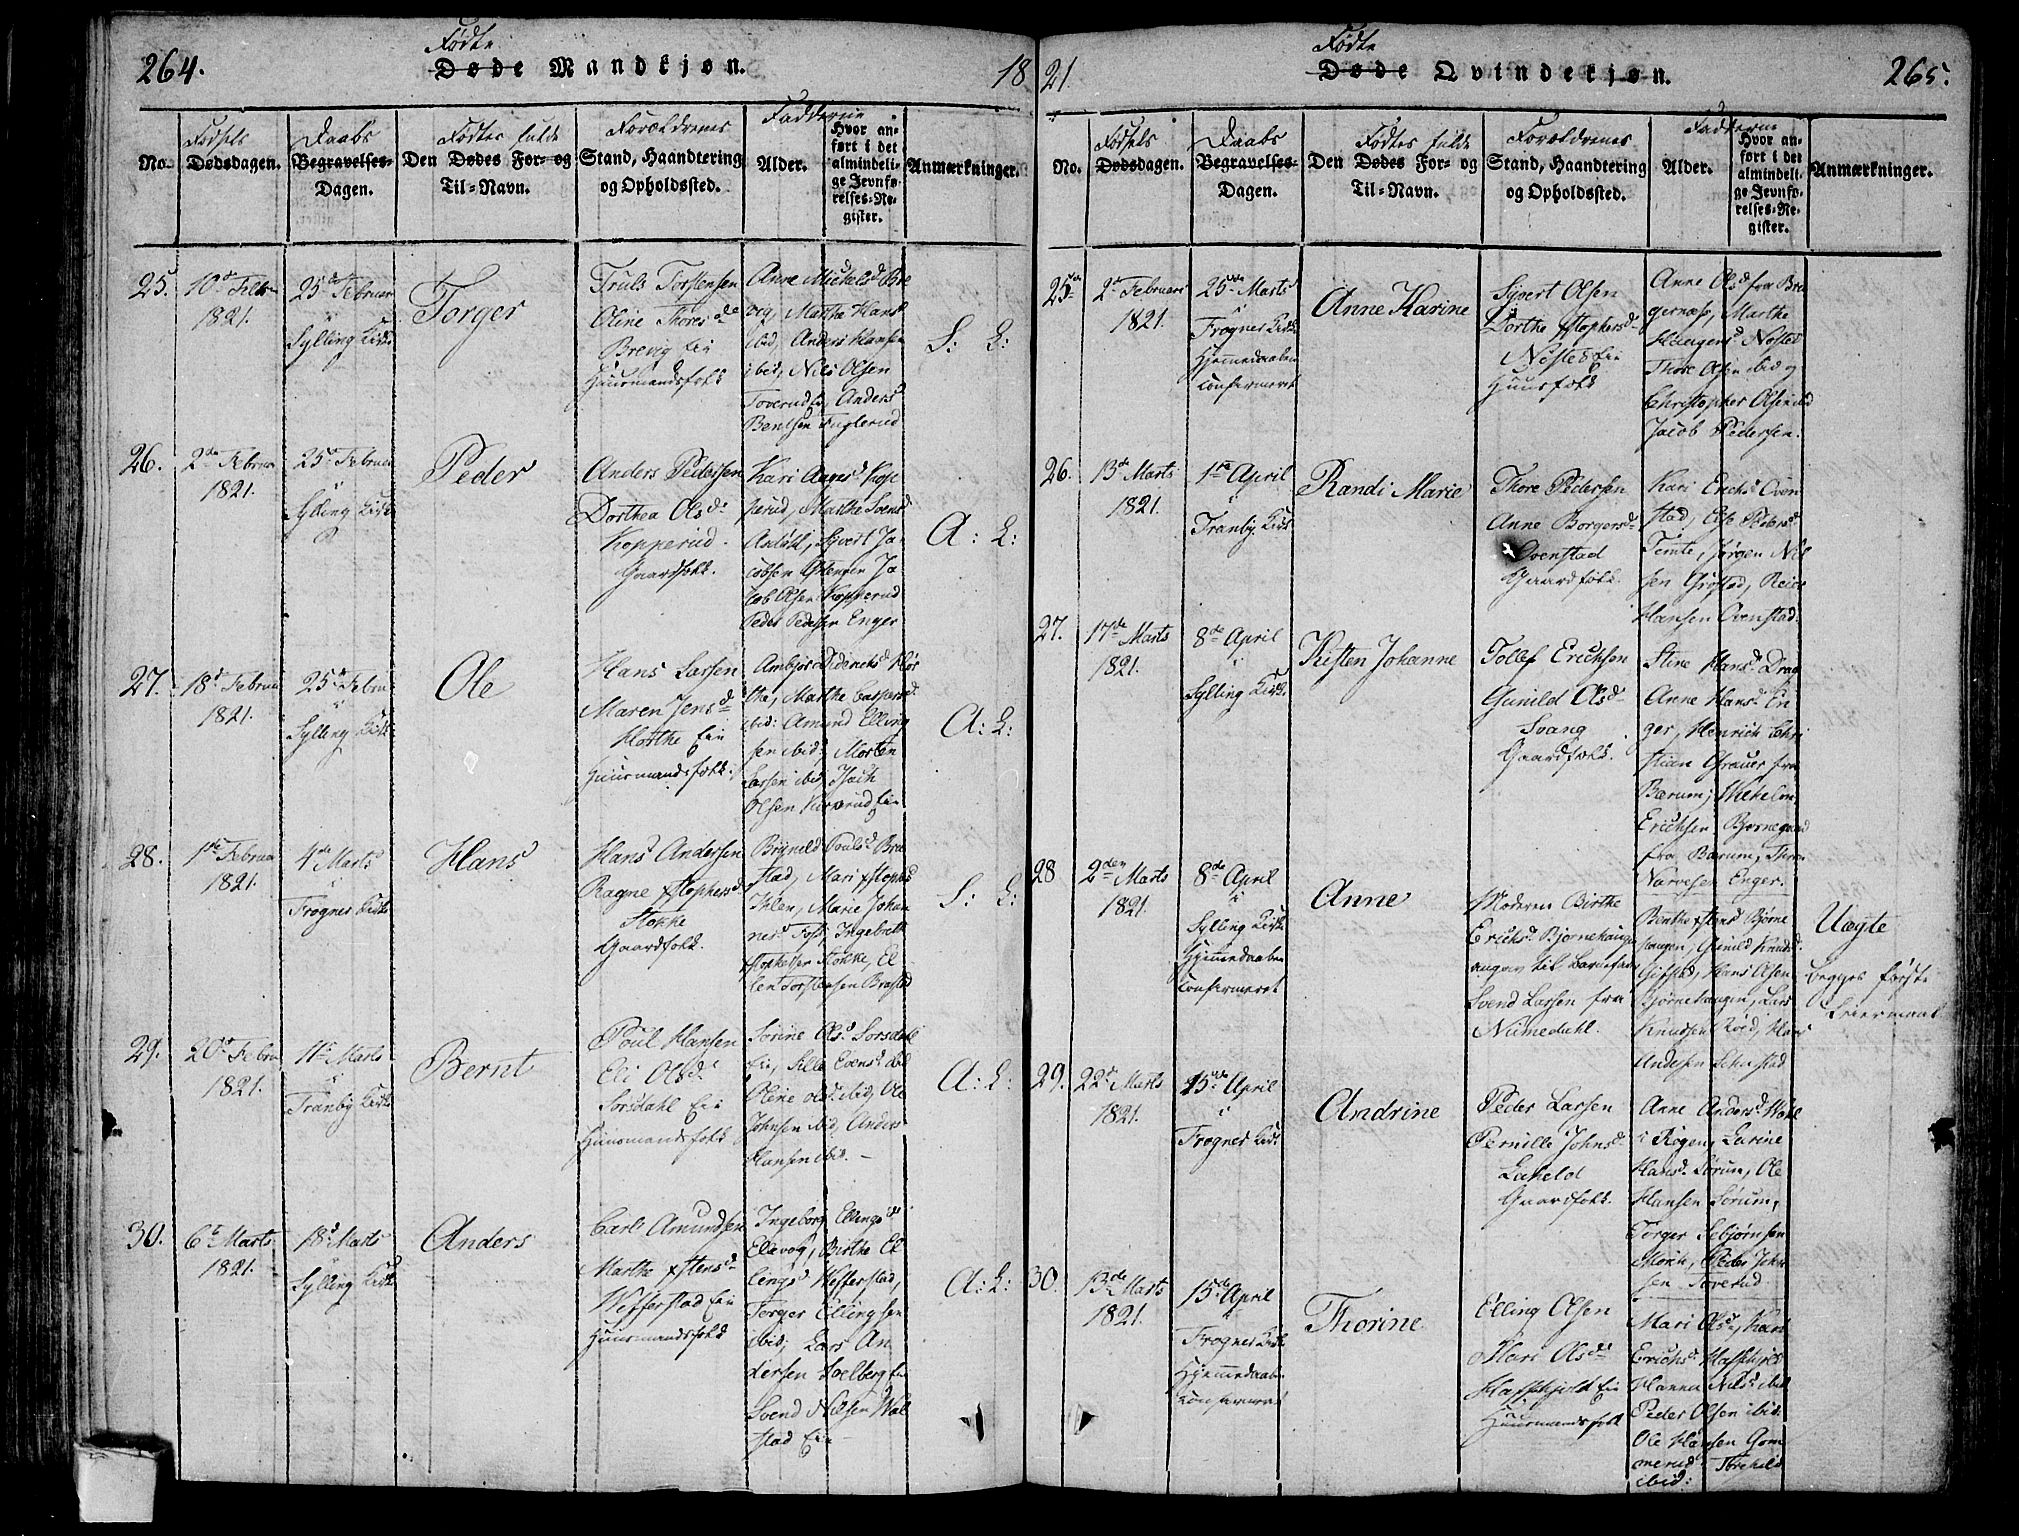 264.
Fødte
Døde Mandkjøn.
18
No.
Fødsels
Dødsdagen.
Daabs
Begravelses-
Dagen.
Fødtes fulde
Den Dødes For- og
Til-Navn.
Forældrenes
Stand, Haandtering
og Opholdssted.
Fadderne
Alder.
Hvor an-
ført i det
almindeli-
ge Jevnfø-
relses-Re-
gister.
Anmærkninger.
25.
10d Febr
1821.
25d Februar
i
Sylling Kirke
Torger
Truls Torstensen
Oline Thoresd
Brevig Eie
Huusmandsfolk
Anne Michelsd Bre
vig, Marthe Hansd
ibid, Anders Hansen
ibid, Nils Olsen
Toverud, Anders
Bentsen Fuglerud
S: L:
26.
2de Februar
1821.
25d Februar
i
Sylling Kirke
Peder
Anders Pedersen
Dorthea Olsd
Kopperud.
Gaardfolk.
Kari Aagesd Kop
perud, Marthe Svensd
Sivert Ja-
cobsen Enger Ja
cob Olsen Kopperud
Peder Pedersen Enger
A: L:
27.
18d Februar
1821.
25d Februar
i
Sylling Kirke
Ole
Hans Larsen
Maren Jensd
Horthe Eie
Huusmandsfolk.
Ambjør Didrichsd Hor
the, Marthe Caspersd
ibid: Amund Elling
sen ibid, Morten
Larsen ibid, Isach
Olsen
A: L:
28.
1de Februar
1821.
4de Marts
i
Frogner Kirke
Hans
Hans Andersen
Ragne Xstophersd
Stokke
Gaardfolk.
Brynild Poulsd Bra
stad, Mari Xstophd
Ihlen, Marie Johan
nesd Foss, Ingebreth
Stokke, El
len Torstensen Brastad
S: L:
29.
20d Febru
1821.
11te Marts
i
Tranby Kirke
Bernt
Poul Hansen
Eli Olsd
Sorsdahl Eie
Huusmandsfolk
Sorine Olsd Sorsdahl
Eie, Sille Evensd ibid
Oline Olsd ibid, Ole
Johnsen ibid, Anders
Hansen ibid.
A: L:
30.
6te Marts
1821.
18d Marts
i
Sylling Kirke
Anders
Carl Amundsen
Marthe Xstensd
Wefferstad Eie
Huusmandsfolk
Ingeborg Ellingsd
Ellevog, Birthe El
lingsd Wefferstad,
Torger Ellingsen
ibid, Lars An
dersen Solberg Eie
Svend Nilsen Wal
stad Eie
A: L:
21.
Fødte
Døde Qvindekjøn.
265.
No.
Fødsels
Dødsdagen.
Daabs
Begravelses-
Dagen.
Fødtes fulde
Den Dødes For- og
Til-Navn.
Forældrenes
Stand, Haandtering
og Opholdssted.
Fadderne
Alder.
Hvor an-
ført i det
almindeli-
ge Jevnfø-
relses-Re-
gister.
Anmærkninger.
25
2d Februar
1821.
25de Marts
i
Frogner Kirke
Hjemmedaaben
confirmeret
Anne Karine
Syvert Olsen
Dorthe Xstophersd
Nøsted Eie
Huusfolk
Anne Olsd fra Bra
gernæss, Marthe
Haagensd Nøsted
Thore Olsen ibid og
Christopher Olsen ibid
Jacob Pedersen.
26.
13de Marts
1821.
1ste April
i
Tranby Kirke
Randi Marie
Thore Pedersen
Anne Borgersd
Ovenstad
Gaardfolk.
Kari Erichsd Oven
stad, Else Pedersd
Temte, Jørgen Nil
sen Gropstad, Reier
Hansen Ovenstad.
27.
17de Marts
1821.
8de April
i
Sylling Kirke
Kisten Johanne
Tollef Erichsen
Gunild Olsd
Svang
Gaardfolk.
Stine Hansd
Anne Hansd En
ger, Henrich Chri
stian Grauer fra
Bærum, Wilhelm
Erichsen Bjørnegaard
fra Bærum, Thor
Narvesen Enger.
28
2den Marts
1821.
8de April
i
Sylling Kirke
Hjemmedaaben
Confirmeret
Anne
Moderen Birthe
Erichsd Bjørnehaugen
angav til Barnefader
Svend Larsen fra
Numedahl.
Birthe Xstensd Bjørne
haugen, Gunild Knudsd
Gifstad, Hans Olsen
Bjørnehaugen, Lars
Knudsen Røed, Hans
Andersen
Uægte
begges første
Leiermaal
29.
22d Marts
1821.
15de April
i
Frogner Kirke
Andrine
Peder Larsen
Pernille Johnsd
Gaardfolk.
Anne Andersd
i Røgen, Karine
Hansd Sørum, Ole
Hansen Sørum,
Torger Sebjørnsen
Mørch, Peder John
sen Toverud
30.
13de Marts
1821.
15de April
i
Frogner Kirke
Hjemmedaaben
confirmeret
Thorine
Elling Olsen
Mari Olsd
Eie
Huusmandsfolk
Mari Olsd, Kari
Erichsd
Hanna Nilsd ibid
Peder Olsen ibid.
Ole Hansen Gom
merud
ibid: